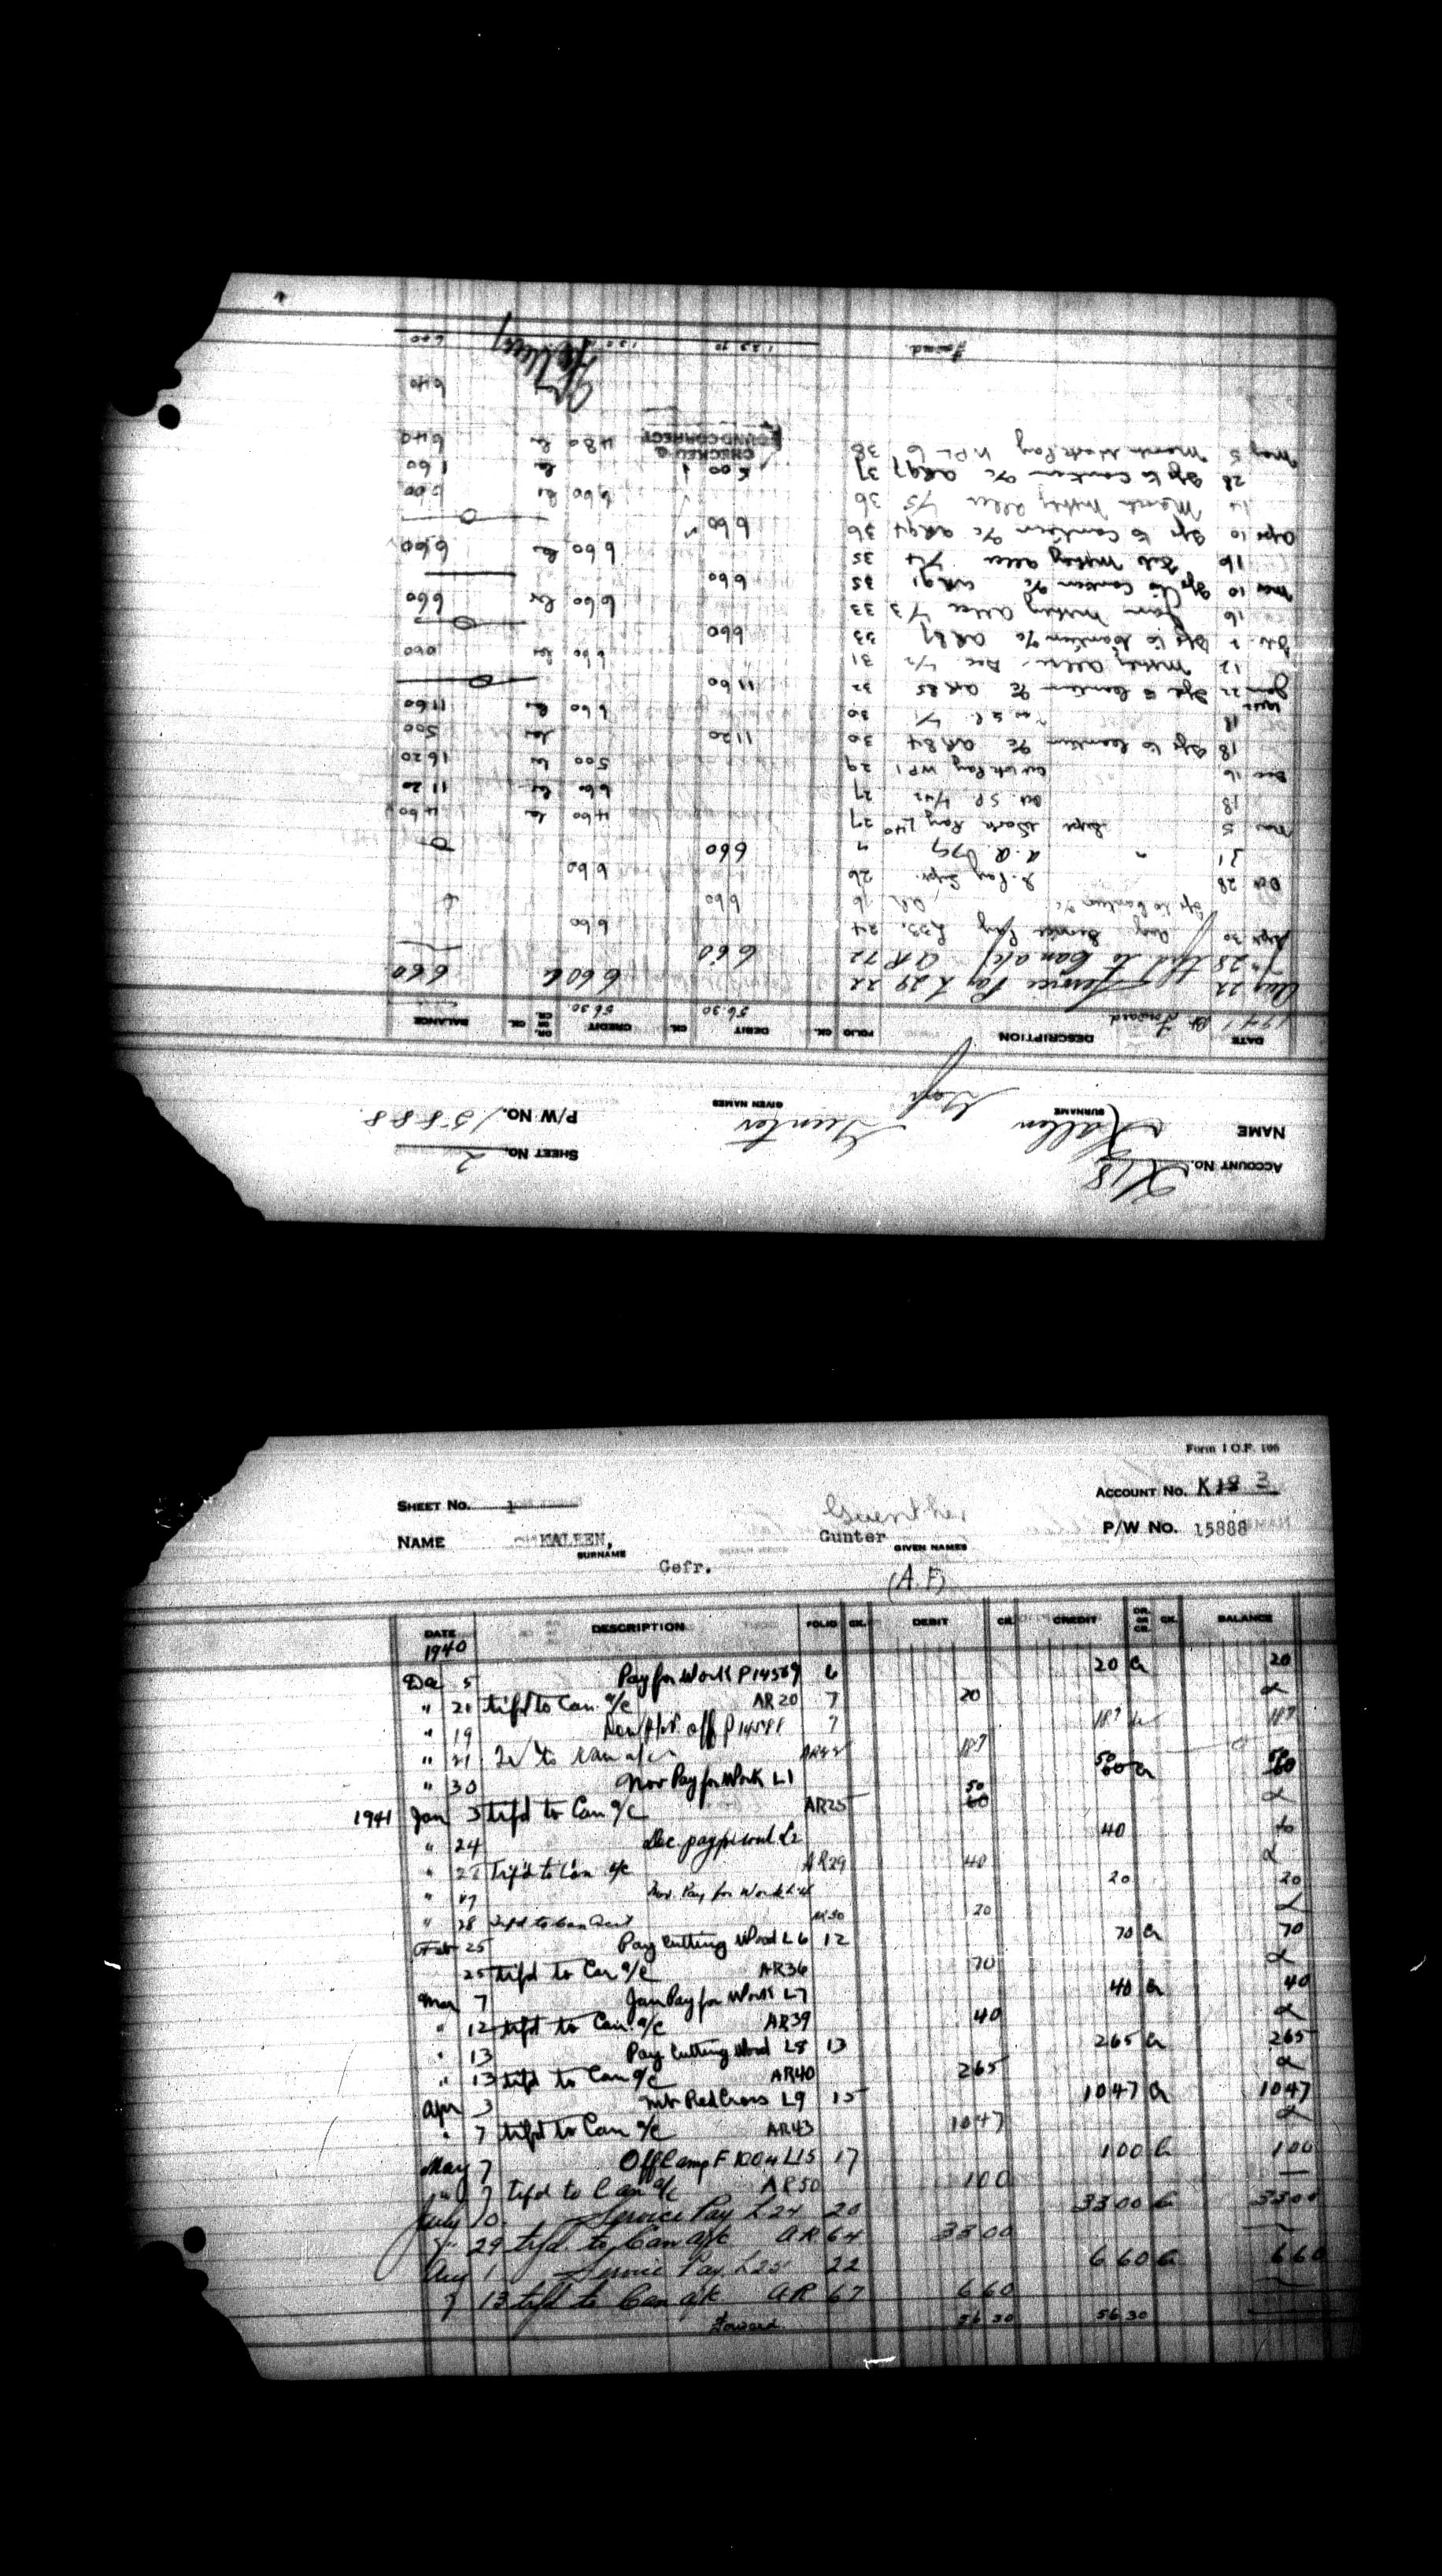 ACCOUNT No. K18
SHEET No. 2
NAME Kallen Gunter P/W No. 15888
SURNAME GIVEN NAMES
Gefr
DATE DESCRIPTION FOLIO CK. DEBIT CK. CREDIT DR. OR CR. CK. BALANCE
1941 Forward 56.30 56.30
Aug 22 Service Pay L29 22 6 60 6 60
" 28 tfd to Can a/c AR 72 6 60
Sept 30 Aug Service Pay L33 24 6 60
Tfr to Canteen a/c AR 76 6 60
Oct 28 S. Pay Sept. 26 6 60
31 " A.R. 79 6 60
Nov 5 Sept Work Pay L40 27 4 60 4 60
18 27 6 60 11 20
Dec 16 Work Pay WP1 29 5 00 16 20
18 Tfr to Canteen a/c AR 84 30 11 20 5 00
18 30 6 60 11 60
Jan 22 Tfr to Canteen a/c AR 85 32 11 60
12 Mthly Allce Dec 31 6 60 6 60
Feb. 2 Tfr to Canteen a/c AR 87 33 6 60
16 Jan Mthly Allce 33 6 60 6 60
Mar 10 Tfr to Canteen a/c AR 91 35 6 60
16 Feb Mthly Allce 35 6 60 6 60
Apr 10 Tfr to Canteen a/c AR94 36 6 60
14 March Mthly Allce 36 6 60
28 Tfr to Canteen a/c AR97 37 5 00 1 60
May 5 March Work Pay WPL 6 38 4 80 6 40
CHECKED &
FOUND CORRECT
6 40
Forward
Form I.O.P. 106
SHEET No. 1 ACCOUNT No. K18 3
Guenther
NAME KALEEN, Gunter P/W No. 15888
SURNAME GIVEN NAMES
Gefr. (A.F)
DATE DESCRIPTION FOLIO CK. DEBIT CK. CREDIT DR. OR CR. CK. BALANCE
1940
Dec 5 Pay for Work P14569 6 20 Cr 20
" 20 trfd to Can. a/c AR 20 7 20
" 19 7 187 187
" 21 to Can a/c 187
" 30 Nov Pay for Work L1 50 60 Cr 50 60
1941 Jan 3 trfd to Can a/c AR25 50 60
" 24 Dec. pay for work L2 40 40
" 27 Trfd to Can a/c AR29 40
" 27 Nov. Pay for Work 20 20
" 28 trfd to Can Acct AR30 20
Feb 25 Pay Cutting Wood L6 12 70 Cr 70
25 trfd to Can a/c AR36 70
Mar 7 Jan Pay for Work L7 40 Cr 40
" 12 trfd to Can. a/c AR39 40
" 13 Pay Cutting Wood L8 13 265 Cr 265
" 13 trfd to Can a/c AR40 265
Apr 3 Red Cross L9 15 1047 Cr 1047
" 7 trfd to Can a/c AR43 1047
May 7 Off Camp F 1004 L15 17 100 Cr 100
" 7 trfd to Can a/c AR50 100
July 10 Service Pay L24 20 33 00 Cr 33 00
" 29 trfd to Can a/c AR 64 33 00
Aug 1 Service Pay L25 22 6 60 Cr 6 60
" 13 trfd to Can a/c AR 67 6 60
Forward 56 30 56 30